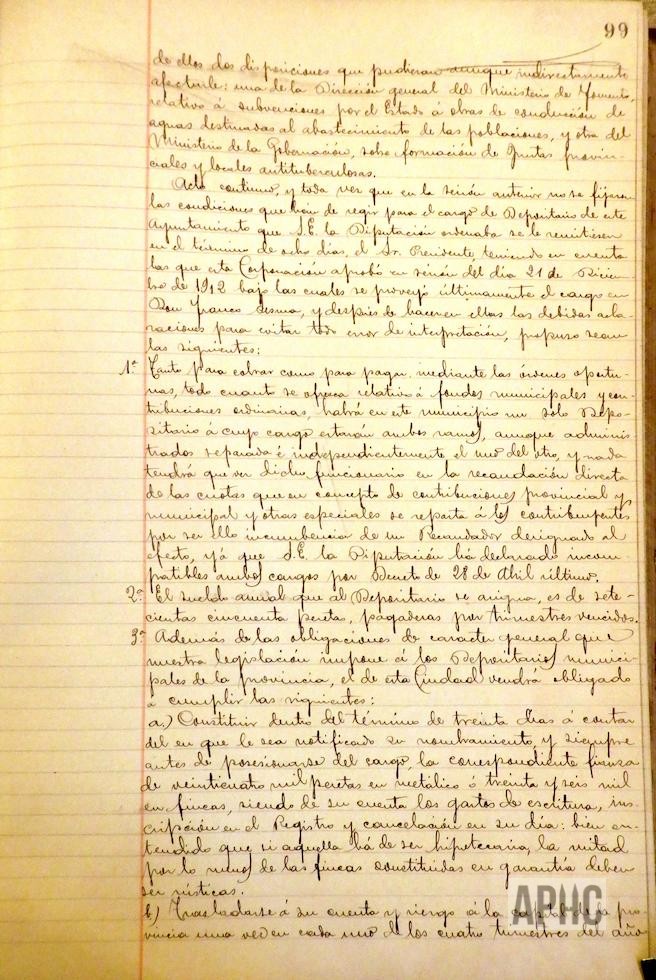 99
de ellas dos disposiciones que pudieran aunque indirectamente
afectarle: una de la Dirección general del Ministerio de Fomento,
relativo á subvenciones por el Estado á obras de conducción de
aguas destinadas al abastecimiento de las poblaciones, y otra del
Ministerio de la Gobernación, sobre formación de Juntas provin-
ciales y locales antituberculosas.
Acto continuo, y toda vez que en la sesión anterior no se fijaron
las condiciones que hán de regir para el cargo de Depositario de este
Ayuntamiento que S.E. la Diputación ordenaba se le remitiesen
en el término de ocho dias, el Sr. Presidente, teniendo en cuenta
las que esta Corporación aprobó en sesión del dia 21 de Diciem-
bre de 1912 bajo las cuales se proveyó últimamente el cargo en
Don Franco Sesma, y después de hacer en ellas las debidas acla-
raciones para evitar todo error de interpretación, propuso sean
las siguientes:
1ª Tanto para cobrar como para pagar, mediante las órdenes oportu-
nas, todo cuanto se ofrezca relativo á fondos municipales y con-
tribuciones ordinarias, habrá en este municipio un solo Depo-
sitario á cuyo cargo estarán ambos ramos, aunque adminis-
trados separada é independientemente el uno del otro, y nada
tendrá que ver dicho funcionario en la recaudación directa
de las cuotas que en concepto de contribuciones provincial y
municipal y otras especiales se reparta á los contribuyentes
por ser ello incumbencia de un Recaudador designado al
efecto, yá que S.E. la Diputación há declarado incom-
patibles ambos cargos por Decreto de 28 de Abril último.
2ª El sueldo anual que al Depositario se asigna, es de sete-
cientas cincuenta pesetas, pagaderas por trimestres vencidos.
3ª Además de las obligaciones de caracter general que
nuestra legislación impone á los Depositarios munici-
pales de la provincia, el de esta Ciudad vendrá obligado
á cumplir las siguientes:
a,) Constituir dentro del término de treinta dias á contar
del en que le sea notificado su nombramiento, y siempre
antes de posesionarse del cargo, la correspondiente fianza
de veinticuatro mil pesetas en metálico ó treinta y seis mil
en fincas, siendo de su cuenta los gastos de escritura, ins-
cripción en el Registro y cancelación en su dia: bien en-
tendido que si aquella há de ser hipotecaria, la mitad
por lo menos de las fincas constituidas en garantía deben
ser rústicas.
b) Trasladarse á su cuenta y riesgo á la capital de la pro-
vincia una vez en cada uno de los cuatro trimestres del año
APHC